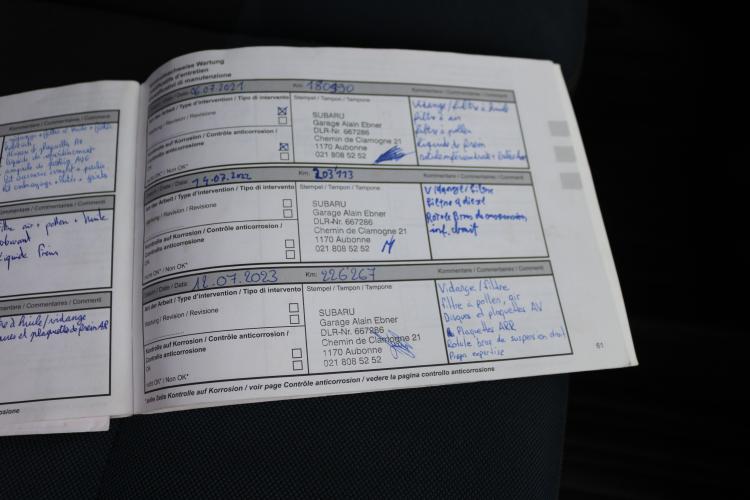 Kommentare / Commentaires / Commenti
Commentaires / Commenti
liquide frein
à huile/vidange
et plaquettes de frein AR
d'entretien
di manutenzione
Date / Data: 06.07.2021
Km: 180490
Kommentare / Commentaires / Commenti
Arbeit / Type d'intervention / Tipo di intervento
Wartung / Revision / Revisione
Kontrolle auf Korrosion / Contrôle anticorrosion /
Controllo anticorrosione
OK
nicht OK* / Non OK*
Stempel / Tampon / Tampone
SUBARU
Garage Alain Ebner
DLR-Nr. 667286
Chemin de Clamogne 21
1170 Aubonne
021 808 52 52
Vidange/filtre à huile
filtre à air
filtre à pollen
Liquide de frein
Date / Data: 14.07.2022
Km: 203'113
Kommentare / Commentaires / Commenti
Art der Arbeit / Type d'intervention / Tipo di intervento
Wartung / Revision / Revisione
Kontrolle auf Korrosion / Contrôle anticorrosion /
Controllo anticorrosione
OK
nicht OK* / Non OK*
Stempel / Tampon / Tampone
SUBARU
Garage Alain Ebner
DLR-Nr. 667286
Chemin de Clamogne 21
1170 Aubonne
021 808 52 52
Vidange/filtre
Filtre à diesel
Rotule bras de suspension
inf. droit
Date / Data: 12.07.2023
Km: 226'267
Kommentare / Commentaires / Commenti
Art der Arbeit / Type d'intervention / Tipo di intervento
Wartung / Revision / Revisione
Kontrolle auf Korrosion / Contrôle anticorrosion /
Controllo anticorrosione
OK
nicht OK* / Non OK*
Stempel / Tampon / Tampone
SUBARU
Garage Alain Ebner
DLR-Nr. 667286
Chemin de Clamogne 21
1170 Aubonne
021 808 52 52
Vidange/filtre
Filtre à pollen, air
Disques et plaquettes AV
Plaquettes ARR
Rotule bras de suspension droit
Prépa expertise
siehe Seite Kontrolle auf Korrosion / voir page Contrôle anticorrosion / vedere la pagina controllo anticorrosione
61